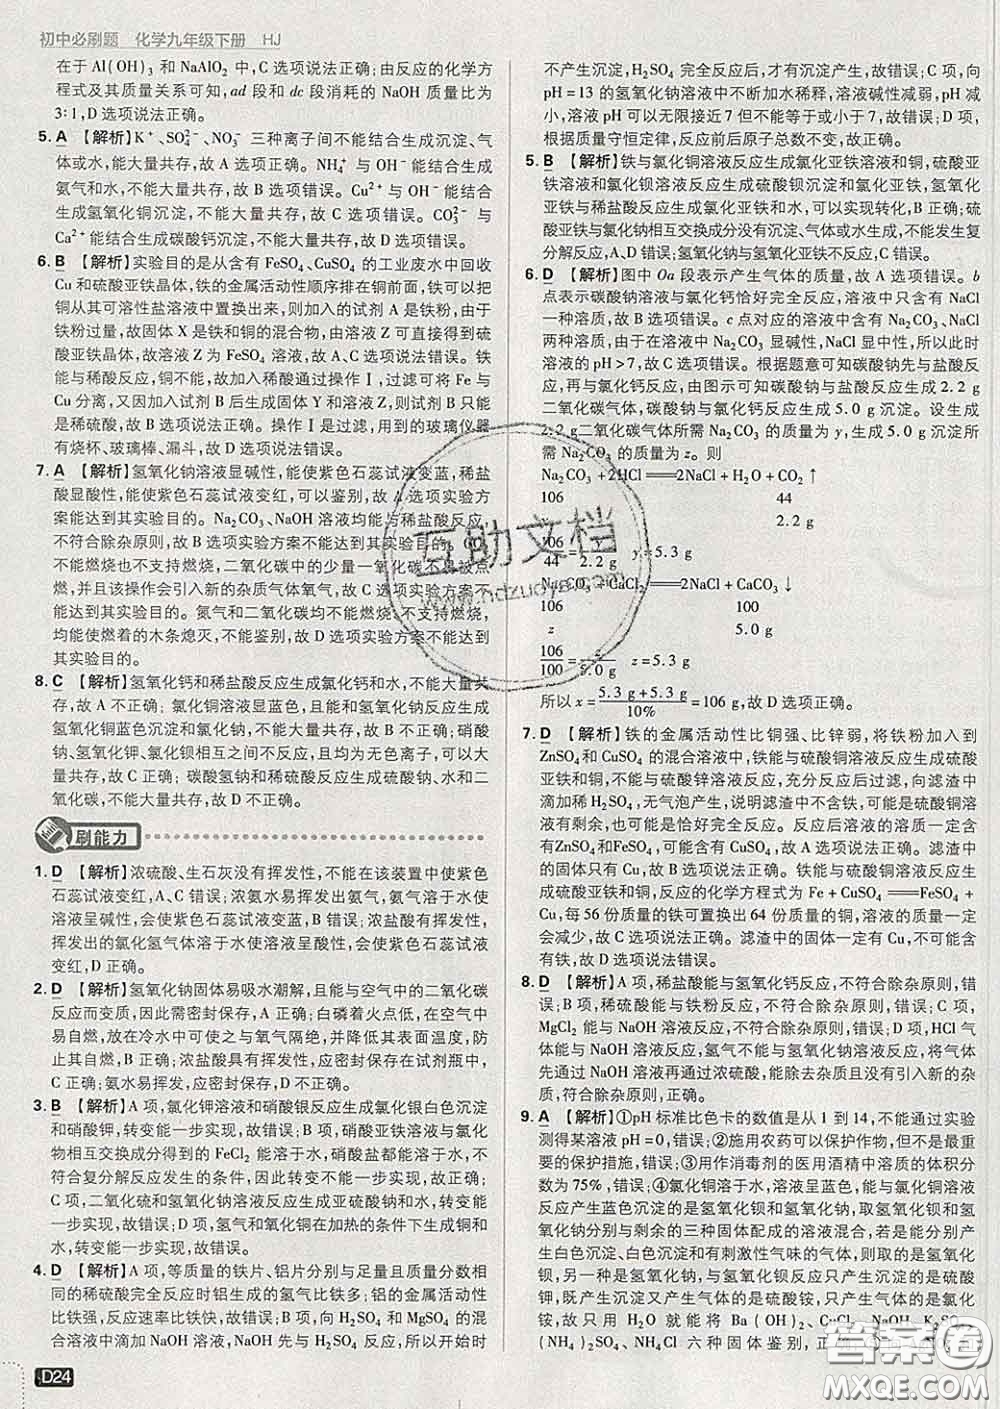 初中必刷题 化学九年级下册 HJ
在于 Al(OH)₃ 和 NaAlO₂ 中,C 选项说法正确;由反应的化学方
程式及其质量关系可知,ad 段和 dc 段消耗的 NaOH 质量比为
3:1,D 选项说法正确。
5. A 【解析】K⁺、SO₄²⁻、NO₃⁻ 三种离子间不能结合生成沉淀、气
体或水,能大量共存,故 A 选项正确。NH₄⁺ 与 OH⁻ 能结合生成
氨气和水,不能大量共存,故 B 选项错误。Cu²⁺ 与 OH⁻ 能结合
生成氢氧化铜沉淀,不能大量共存,故 C 选项错误。CO₃²⁻ 与
Ca²⁺ 能结合生成碳酸钙沉淀,不能大量共存,故 D 选项错误。
6. B 【解析】实验目的是从含有 FeSO₄、CuSO₄ 的工业废水中回收
Cu 和硫酸亚铁晶体,铁的金属活动性顺序排在铜前面,铁可以把
铜从其可溶性盐溶液中置换出来,则加入的试剂 A 是铁粉,由于
铁粉过量,故固体 X 是铁和铜的混合物,由溶液 Z 可直接得到硫
酸亚铁晶体,故溶液 Z 为 FeSO₄ 溶液,故 A、C 选项说法错误。铁
能与稀硫酸反应,铜不能,故加入稀酸通过操作Ⅰ,过滤可将 Fe 与
Cu 分离,又因加入试剂 B 后生成固体 Y 和溶液 Z,则试剂 B 只能
是稀硫酸,故 B 选项说法正确。操作Ⅰ是过滤,用到的玻璃仪器
有烧杯、玻璃棒、漏斗,故 D 选项说法错误。
7. A 【解析】氢氧化钠溶液显碱性,能使紫色石蕊试液变蓝,稀盐
酸显酸性,能使紫色石蕊试液变红,可以鉴别,故 A 选项实验方
案能达到其实验目的。Na₂CO₃、NaOH 溶液均能与稀盐酸反应,
不符合除杂原则,故 B 选项实验方案不能达到其实验目的。CO₂
不能燃烧也不支持燃烧,二氧化碳中的少量一氧化碳不易被点
燃,并且该操作会引入新的杂质气体氧气,故 C 选项实验方案不
能达到其实验目的。氮气和二氧化碳均不能燃烧、不支持燃烧,
均能使燃着的木条熄灭,不能鉴别,故 D 选项实验方案不能达到
其实验目的。
8. C 【解析】氢氧化钙和稀盐酸反应生成氯化钙和水,不能大量共
存,故 A 错误;氯化铜溶液显蓝色,且能与氢氧化钠反应生成氢
氧化铜蓝色沉淀和氯化钠,不能大量共存,故 B 错误;硝酸
钠、氢氧化钾、氯化钡相互之间不反应,且均为无色离子,可以大
量共存,故 C 正确;碳酸氢钠和稀硫酸反应生成硫酸钠、水和二
氧化碳,不能大量共存,故 D 错误。
刷能力
1. D 【解析】浓硫酸、生石灰没有挥发性,不能在该装置中使紫色
石蕊试液变红,A、C 错误;浓氨水易挥发出氨气,氨气溶于水使
溶液呈碱性,会使紫色石蕊试液变蓝,B 错误;浓盐酸有挥发性,
挥发出的氯化氢气体溶于水使溶液呈酸性,会使紫色石蕊试液
变红,D 正确。
2. D 【解析】氢氧化钠固体易吸水潮解,且能与空气中的二氧化碳
反应而变质,因此需密封保存,A 正确;白磷着火点低,在空气中
易自燃,放在冷水中可使之与氧气隔绝,并降低其表面温度,防
止自燃,B 正确;浓盐酸具有挥发性,应密封保存在试剂瓶中,
C 正确;氨水易挥发,应密封保存,故 D 错误。
3. B 【解析】A 项,氯化钾溶液和硝酸银反应生成氯化银白色沉淀
和硝酸钾,转变能一步实现,故错误;B 项,硝酸亚铁溶液与氯化
物相互交换成分得到的 FeCl₂ 能溶于水,硝酸盐都能溶于水,故
不符合复分解反应发生的条件,转变不能一步实现,故正确;
C 项,二氧化硫和氢氧化钠溶液反应生成亚硫酸钠和水,转变能
一步实现,故错误;D 项,氢气和氧化铜在加热的条件下生成铜和
水,转变能一步实现,故错误。
4. D 【解析】A 项,等质量的铁片、铝片分别与足量且质量分数相
同的稀硫酸完全反应时铝生成的氢气比铁多;铝的金属活动性
比铁强,反应速率比铁快,故错误;B 项,向 H₂SO₄ 和 MgSO₄ 的
混合溶液中滴加 NaOH 溶液,NaOH 先与 H₂SO₄ 反应,所以开始时
D24
不产生沉淀,H₂SO₄ 完全反应后,才有沉淀产生,故错误;C 项,向
pH=13 的氢氧化钠溶液中不断加水稀释,溶液碱性减弱,pH 减
小,故 pH 可以无限接近 7 但不能等于或小于 7,故错误;D 项,
根据质量守恒定律,反应前后原子总数不变,故正确。
5. B 【解析】铁与氯化铜溶液反应生成氯化亚铁溶液和铜,硫酸亚
铁溶液和氯化钡溶液反应生成硫酸钡沉淀和氯化亚铁,氢氧化
亚铁与稀盐酸反应生成氯化亚铁和水,可以实现转化,B 正确;硫
酸亚铁与氯化钠相互交换成分没有沉淀、气体或水生成,不能发生复
分解反应,A、D 错误;氢氧化钠与氢氧化亚铁不反应,C 错误。
6. D 【解析】图中 Oa 段表示产生气体的质量,故 A 选项错误。b
点表示碳酸钠溶液与氯化钙恰好完全反应,溶液中只含有 NaCl
一种溶质,故 B 选项错误。c 点对应的溶液中含有 Na₂CO₃、NaCl
两种溶质,由于溶液中 Na₂CO₃ 显碱性,NaCl 显中性,所以此时
溶液的 pH>7,故 C 选项错误。根据题意可知碳酸钠先与盐酸反
应,再与氯化钙反应,由图示可知碳酸钠与盐酸反应生成 2.2 g
二氧化碳气体,碳酸钠与氯化钙反应生成 5.0 g 沉淀。设生成
2.2 g 二氧化碳气体所需 Na₂CO₃ 的质量为 y,生成 5.0 g 沉淀所
需 Na₂CO₃ 的质量为 z。则
Na₂CO₃+2HCl═══2NaCl+H₂O+CO₂↑
106 44
y 2.2 g
106/44=y/2.2 g y=5.3 g
Na₂CO₃+CaCl₂═══2NaCl+CaCO₃↓
106 100
z 5.0 g
106/100=z/5.0 g z=5.3 g
所以 x=(5.3 g+5.3 g)/10%=106 g,故 D 选项正确。
7. D 【解析】铁的金属活动性比铜强、比锌弱,将铁粉加入到
ZnSO₄和 CuSO₄ 的混合溶液中,铁能与硫酸铜反应生成硫酸
亚铁和铜,不能与硫酸锌溶液反应,充分反应后过滤,向滤渣中
滴加稀 H₂SO₄,无气泡产生,说明滤渣中不含铁,可能是硫酸铜溶
液有剩余,也可能是恰好完全反应。反应后溶液中一定
含有ZnSO₄和 FeSO₄,故 A、B 选项说法正确。滤渣中
的固体一定含有Cu,故 B 选项说法正确。铁能与硫酸铜溶液反应生
成硫酸亚铁和铜,反应的化学方程式为 Fe+CuSO₄═══FeSO₄+
Cu,每 56 份质量的铁可置换出 64 份质量的铜,溶液的质量一定
会减少,故 C 选项说法正确。滤渣中的固体一定有 Cu,不可能含
有铁,故 D 选项说法错误。
8. D 【解析】A 项,稀盐酸能与氢氧化钙反应,不符合除杂原则,错
误;B 项,稀硫酸能与铁粉反应,不符合除杂原则,错误;C 项,
MgCl₂ 能与 NaOH 溶液反应,不符合除杂原则,错误;D 项,HCl 气
体能与 NaOH 溶液反应,氢气不能与氢氧化钠溶液反应,将气体
先通过 NaOH 溶液再通过浓硫酸,能除去杂质且没有引入新的杂
质,符合除杂原则,正确。
9. A 【解析】①pH 标准比色卡的数值是从 1 到 14,不能通过实验
测得某溶液 pH=0,错误;②施用农药可以保护作物,但不是最重
要的保护措施,错误;③用作消毒剂的医用酒精中溶质的体积分
数为 75%,错误;④氯化铜溶于水,溶液呈蓝色,能与氯化铜溶液
反应产生蓝色沉淀的是氢氧化钡和氢氧化钠,取氢氧化钡和氢
氧化钠分别与剩余的三种固体配成的溶液混合,若是能分别产
生白色沉淀、白色沉淀和有刺激性气味的气体,则取的是氢氧化
钡,剩余的是氢氧化钠,与氢氧化钡反应只产生沉淀的是硫酸
钾,既产生沉淀又产生气体的是硫酸铵,只产生气体的是氯化
铵,故只用 H₂O 就能将 Ba(OH)₂、CuCl₂、NaOH、K₂SO₄、
(NH₄)₂SO₄、NH₄Cl 六种固体鉴别,正确。
互助文档
www.hdzuoye.com
答案圈
MXQE.COM